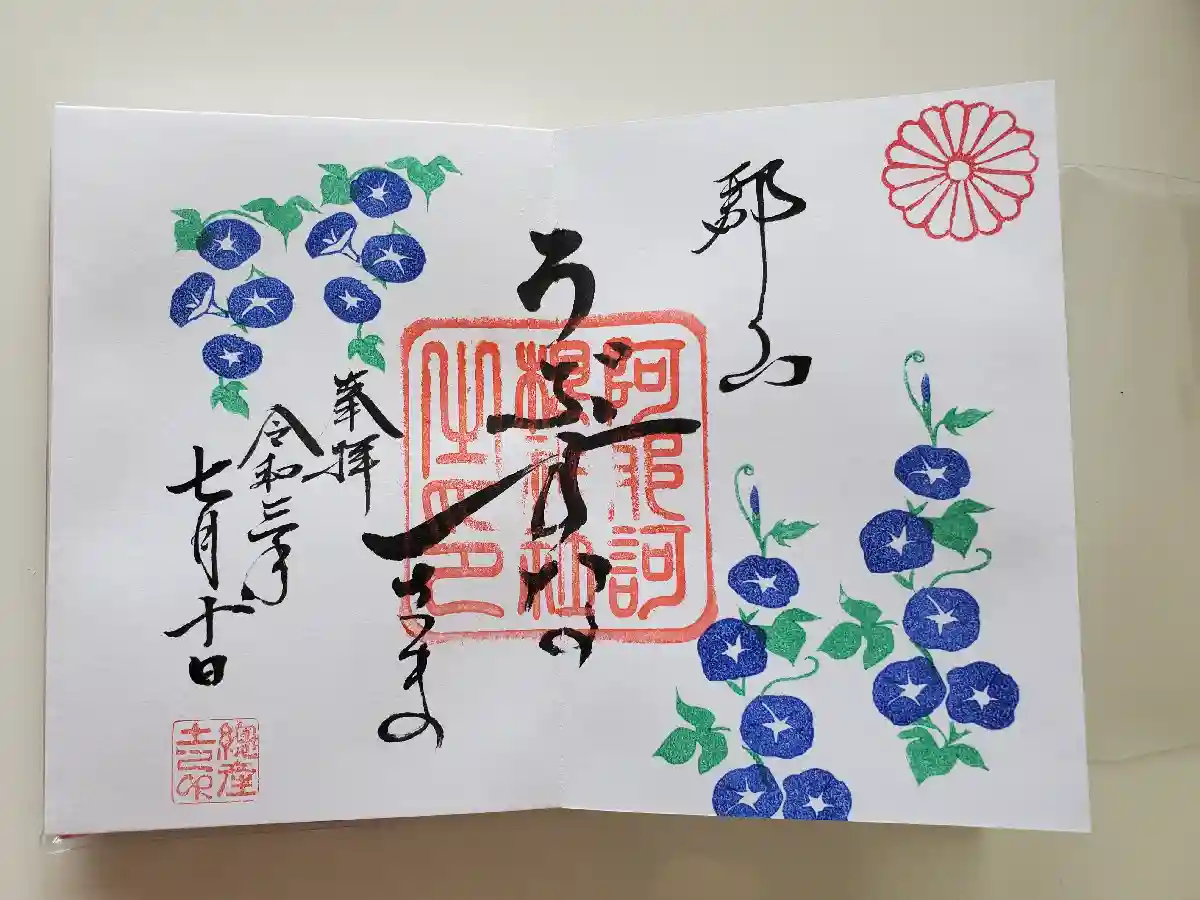 郡山
うぶすなの
阿邪訶
根神社
之印
奉拝
令和三年
七月十日
總産
土印